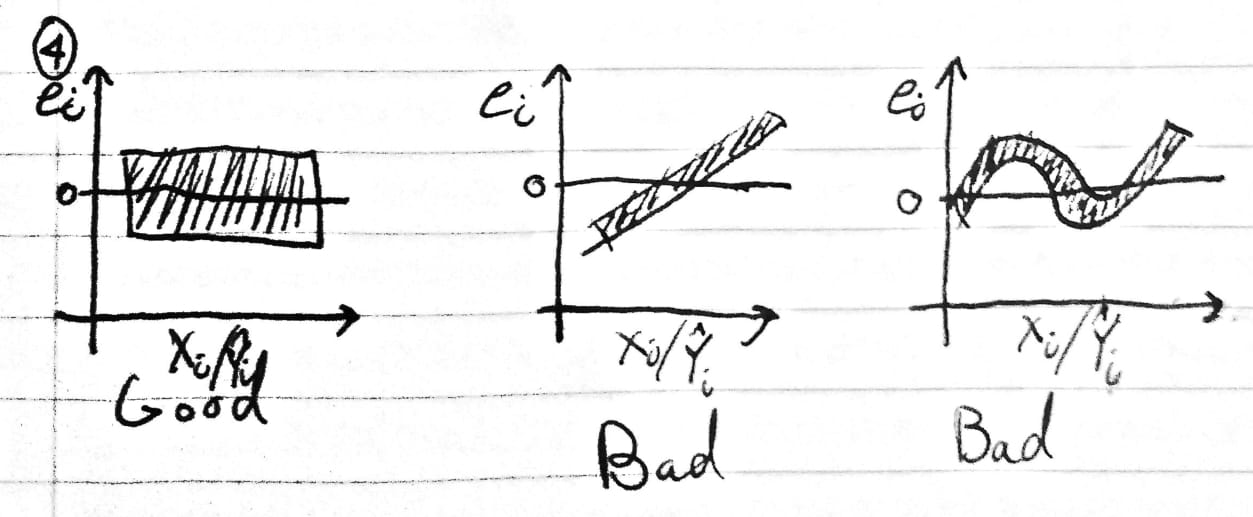 ④
eᵢ
0
Xᵢ/Ŷᵢ
Good
eᵢ
0
Xᵢ/Ŷᵢ
Bad
eᵢ
0
Xᵢ/Ŷᵢ
Bad